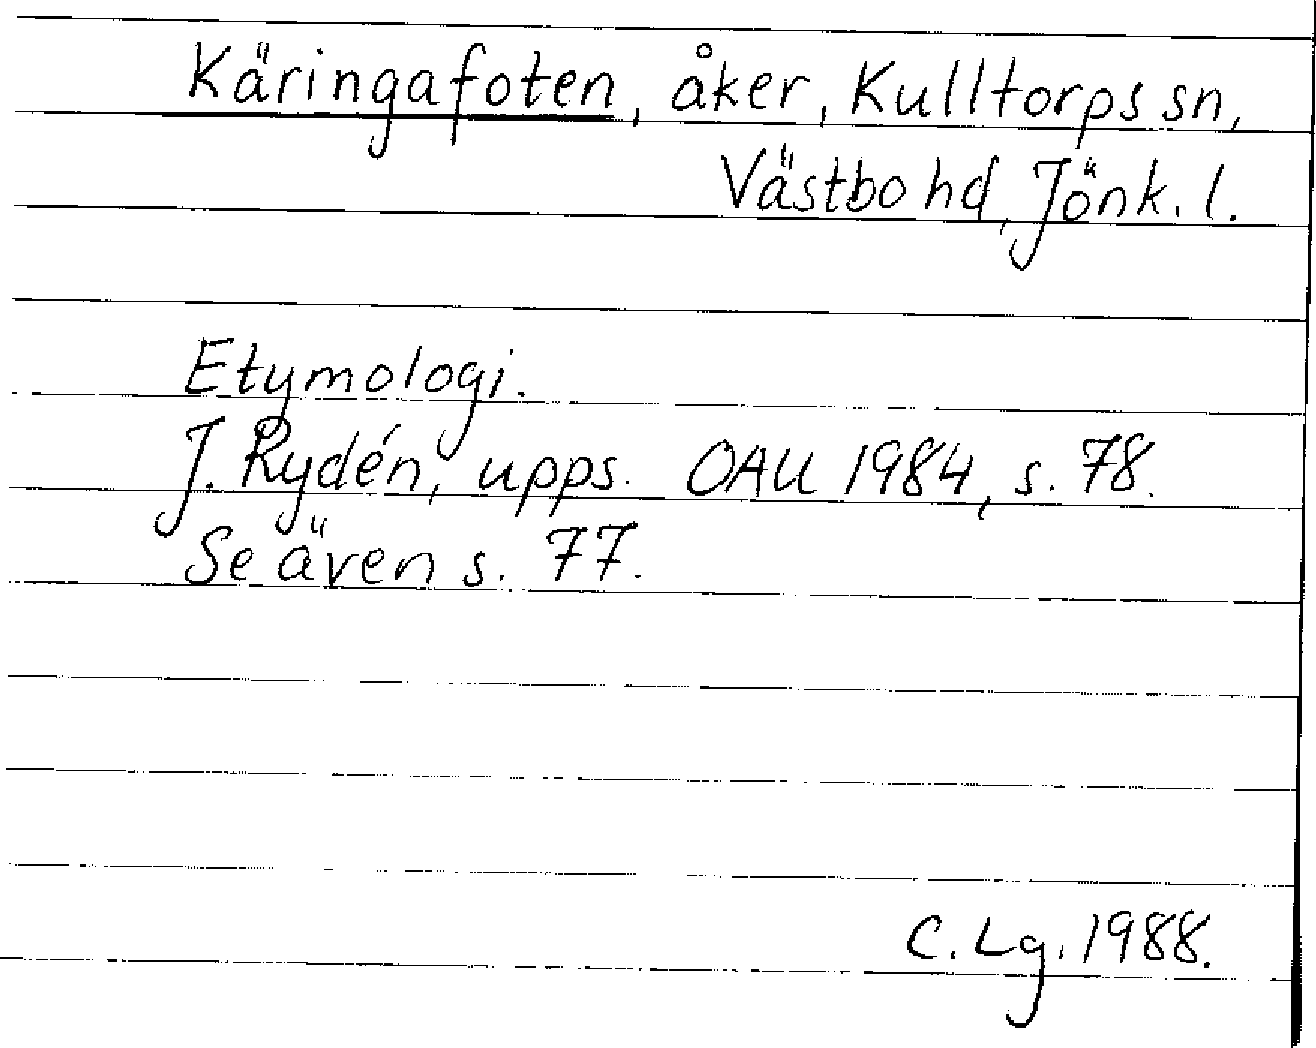 Käringafoten, åker, Kulltorps sn,
Västbo hd, Jönk. l.
Etymologi.
J. Rydén, upps. OAU 1984, s. 78.
Se även s. 77.
C. Lg. 1988.